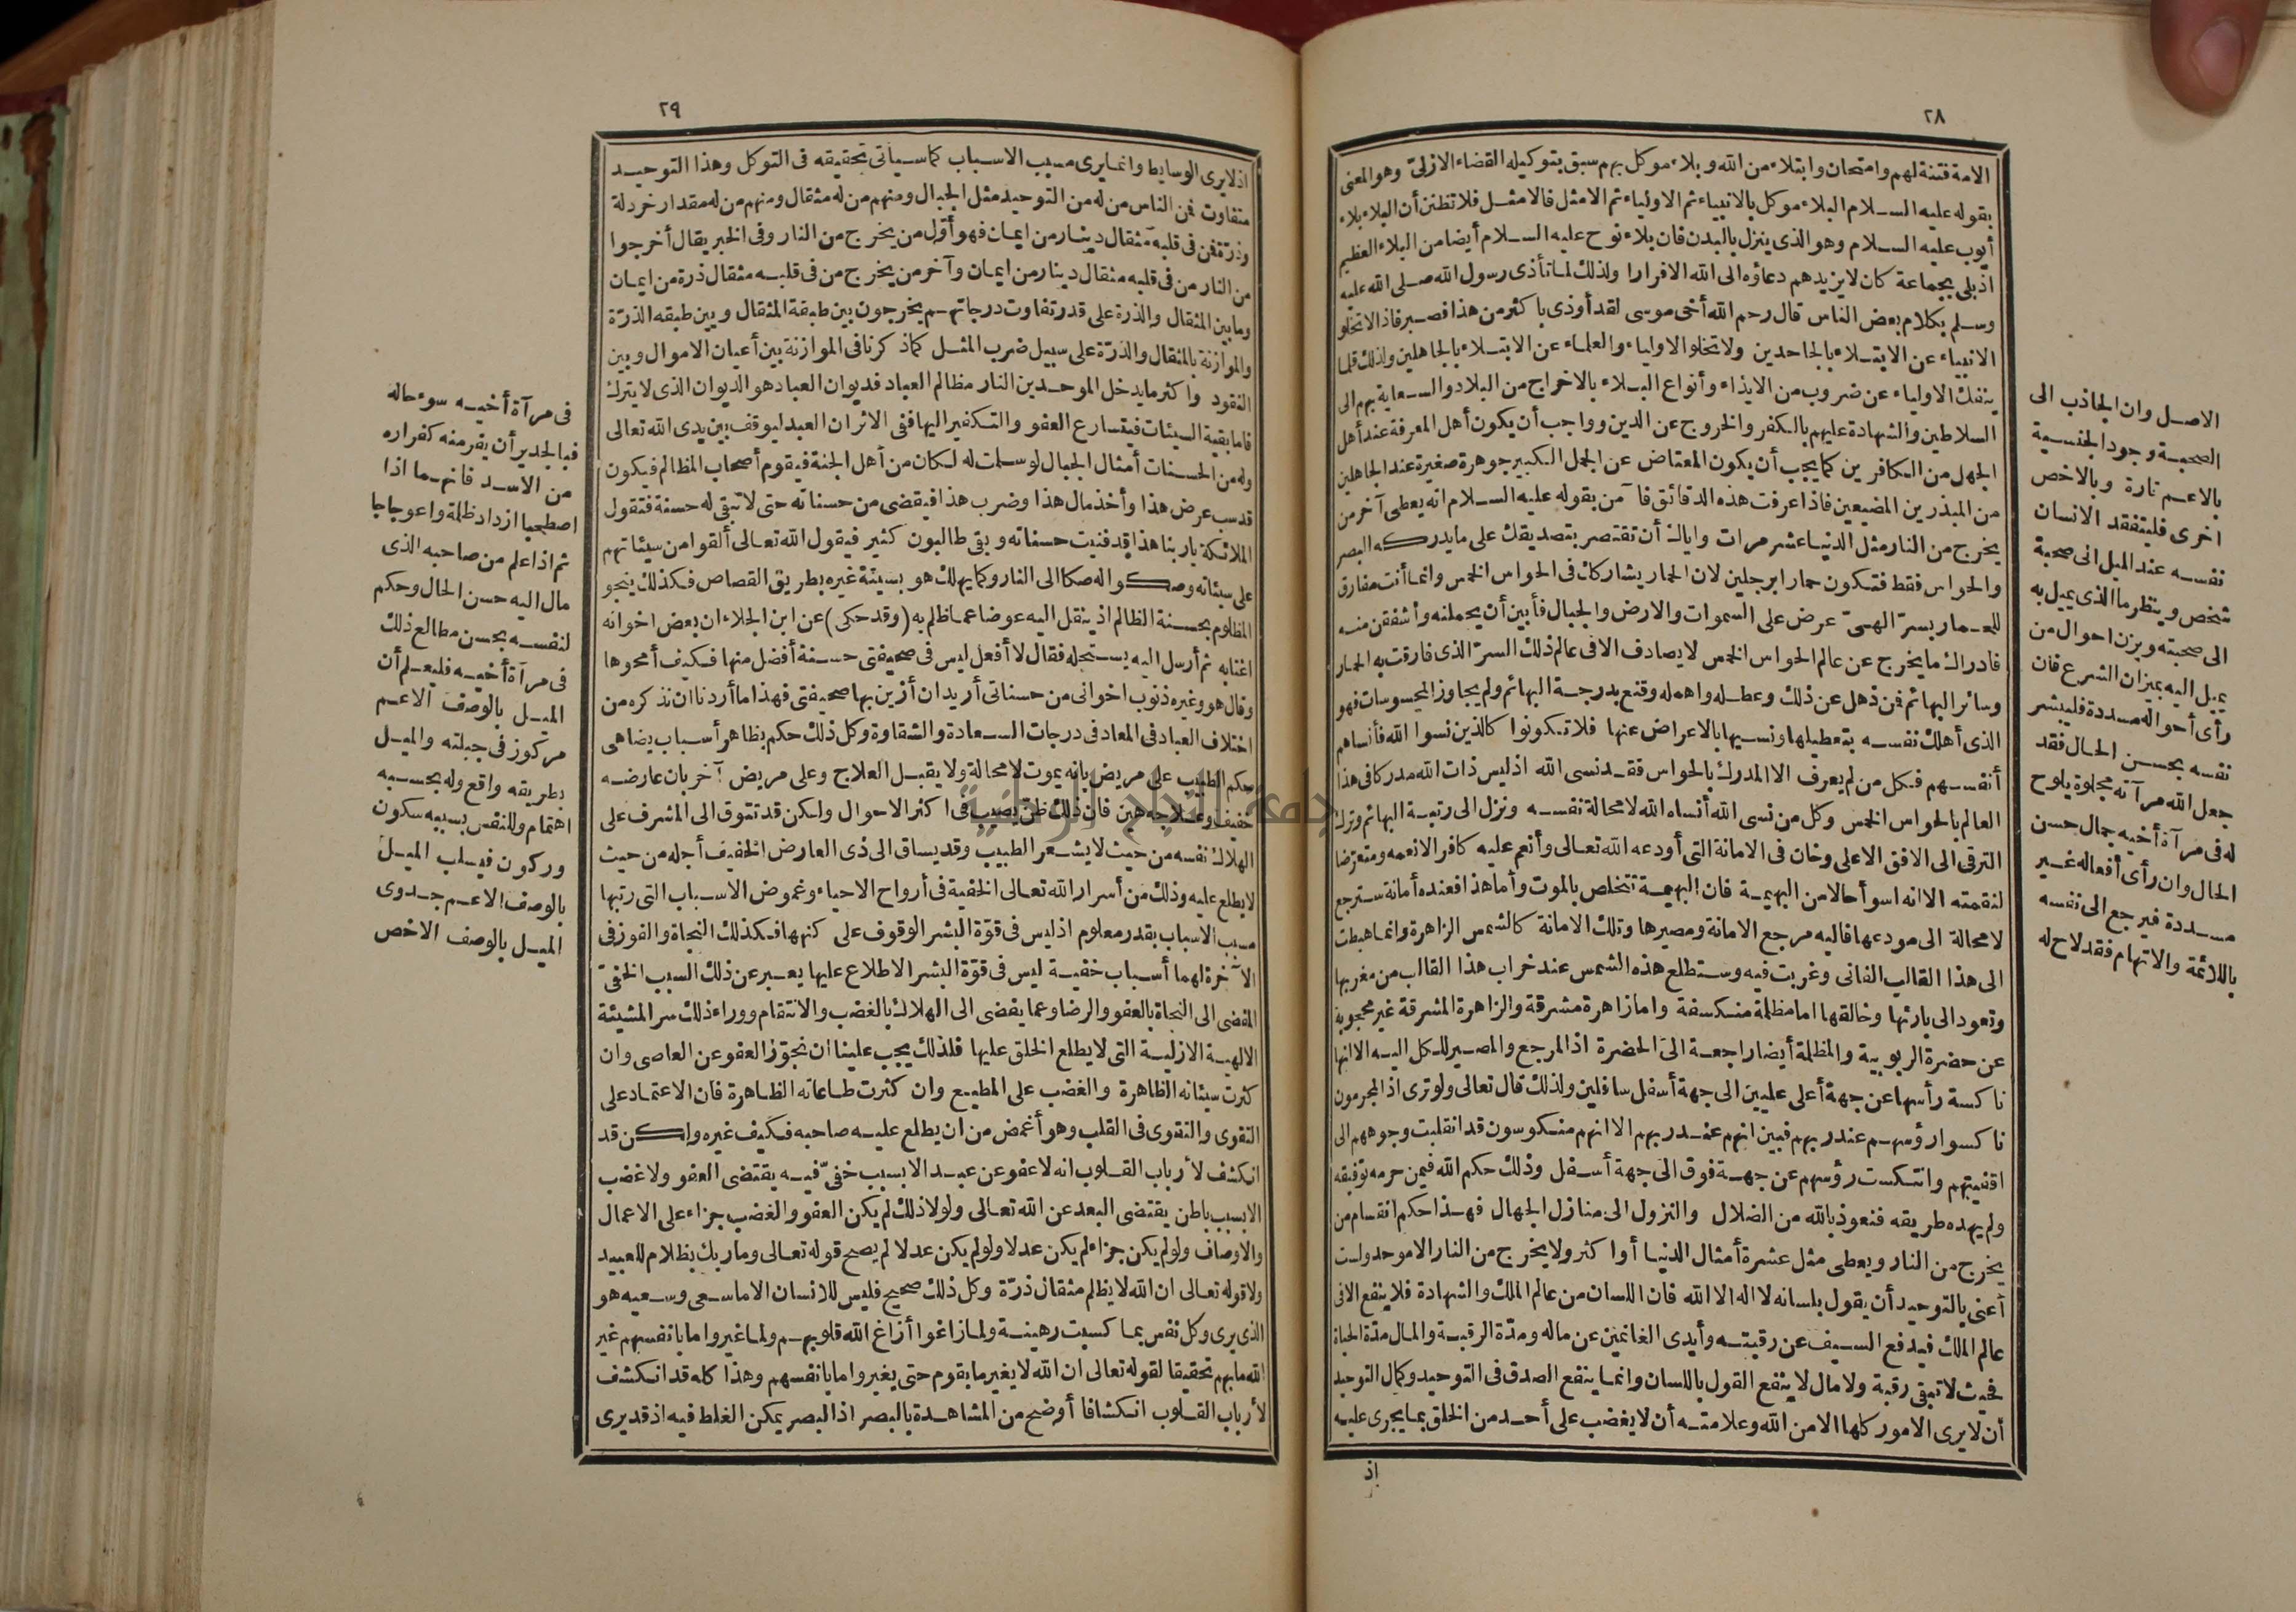 ٢٨
الامة فتنة لهم وامتحان وابتلاء من الله وبلاء موكل بهم سبق بتوكيله القضاء الازلىّ وهو المعنى
بقوله عليه السلام البلاء موكل بالانبياء ثم الاولياء ثم الامثل فالامثل فلا تظنن أن البلاء بلاء
أيوب عليه السلام وهو الذى ينزل بالبدن فان بلاء نوح عليه السلام أيضا من البلاء العظيم
اذ بلى بجماعة كان لا يزيدهم دعاؤه الى الله الا فرارا ولذلك لما تأذى رسول الله صلى الله عليه
وسلم بكلام بعض الناس قال رحم الله أخى موسى لقد أوذى باكثر من هذا فصبر فاذا لا تخلو
الانبياء عن الابتلاء بالجاحدين ولا تخلو الاولياء والعلماء عن الابتلاء بالجاهلين ولذلك قلما
ينفك الاولياء عن ضروب من الايذاء وأنواع البلاء بالاخراج من البلاد والسعاية بهم الى
السلاطين والشهادة عليهم بالكفر والخروج عن الدين وواجب أن يكون أهل المعرفة عند أهل
الجهل من الكافرين كما يجب أن يكون المعتاض عن الجمل الكبير جوهرة صغيرة عند الجاهلين
من المبذرين المضيعين فاذا عرفت هذه الدقائق فآمن بقوله عليه السلام انه يعطى آخر من
يخرج من النار مثل الدنيا عشر مرات واياك أن تقتصر بتصديقك على ما يدركه البصر
والحواس فقط فتكون حمارا برجلين لان الحمار يشاركك فى الحواس الخمس وانما أنت مفارق
للحمار بسرّ الهىّ عرض على السموات والارض والجبال فأبين أن يحملنه وأشفقن منه
فادراك ما يخرج عن عالم الحواس الخمس لا يصادف الا فى عالم ذلك السرّ الذى فارقت به الحمار
وسائر البهائم فمن ذهل عن ذلك وعطله واهمله وقنع بدرجة البهائم ولم يجاوز المحسوسات فهو
الذى أهلك نفسه بتعطيلها ونسيها بالاعراض عنها فلا تكونوا كالذين نسوا الله فأنساهم
أنفسهم فكل من لم يعرف الا المدرك بالحواس فقد نسى الله اذ ليس ذات الله مدركا فى هذا
العالم بالحواس الخمس وكل من نسى الله أنساه الله لا محالة نفسه ونزل الى رتبة البهائم وترك
الترقى الى الافق الاعلى وخان فى الامانة التى أودعه الله تعالى وأنعم عليه كافرا لانعمه ومتعرّضا
لنقمته الا انه اسوأ حالا من البهيمة فان البهيمة تتخلص بالموت وأما هذا فعنده أمانة سترجع
لا محالة الى مودعها فاليه مرجع الامانة ومصيرها وتلك الامانة كالشمس الزاهرة وانما هبطت
الى هذا القالب الفانى وغربت فيه وستطلع هذه الشمس عند خراب هذا القالب من مغربها
وتعود الى بارئها وخالقها اما مظلمة منكسفة واما زاهرة مشرقة والزاهرة المشرقة غير محجوبة
عن حضرة الربوبية والمظلمة أيضا راجعة الى الحضرة اذ المرجع والمصير للكل اليه الا انها
ناكسة رأسها عن جهة أعلى عليين الى جهة أسفل سافلين ولذلك قال تعالى ولو ترى اذ المجرمون
ناكسوا رؤسهم عند ربهم فبين انهم عند ربهم الا انهم منكوسون قد انقلبت وجوههم الى
اقفيتهم وانتكست رؤسهم عن جهة فوق الى جهة أسفل وذلك حكم الله فيمن حرمه توفيقه
ولم يهده طريقه فنعوذ بالله من الضلال والنزول الى منازل الجهال فهذا حكم انقسام من
يخرج من النار ويعطى مثل عشرة أمثال الدنيا أو اكثر ولا يخرج من النار الا موحد ولست
أعنى بالتوحيد أن يقول بلسانه لا اله الا الله فان اللسان من عالم الملك والشهادة فلا ينفع الا فى
عالم الملك فيدفع السيف عن رقبته وأيدى الغانمين عن ماله ومدّة الرقبة والمال مدّة الحياة
فحيث لا تبقى رقبة ولا مال لا ينفع القول باللسان وانما ينفع الصدق فى التوحيد وكمال التوحيد
أن لا يرى الامور كلها الا من الله وعلامته أن لا يغضب على أحد من الخلق بما يجرى عليه
اذ
الاصل وان الجاذب الى
الصحبة وجود الجنسية
بالاعم تارة وبالاخص
اخرى فليتفقد الانسان
نفسه عند الميل الى صحبة
شخص وينظر ما الذى يميل به
الى صحبته ويزن احوال من
يميل اليه بميزان الشرع فان
رأى أحواله مسددة فليبشر
نفسه بحسن الحال فقد
جعل الله مرآته مجلوة يلوح
له فى مرآة أخيه جمال حسن
الحال وان رأى أفعاله غير
مسددة فيرجع الى نفسه
باللائمة والاتهام فقد لاح له
٢٩
اذ لا يرى الوسايط وانما يرى مسبب الاسباب كما سيأتى تحقيقه فى التوكل وهذا التوحيد
متفاوت فمن الناس من له من التوحيد مثل الجبال ومنهم من له مثقال ومنهم من له مقدار خردلة
وذرّة فمن فى قلبه مثقال دينار من ايمان فهو أوّل من يخرج من النار وفى الخبر يقال أخرجوا
من النار من فى قلبه مثقال دينار من ايمان وآخر من يخرج من فى قلبه مثقال ذرة من ايمان
وما بين المثقال والذرة على قدر تفاوت درجاتهم يخرجون بين طبقة المثقال وبين طبقه الذرّة
والموازنة بالمثقال والذرّة على سبيل ضرب المثل كما ذكرنا فى الموازنة بين أعيان الاموال وبين
النقود واكثر ما يدخل الموحدين النار مظالم العباد فديوان العباد هو الديوان الذى لا يترك
فاما بقية السيئات فيتسارع العفو والتكفير اليها ففى الاثر ان العبد ليوقف بين يدى الله تعالى
وله من الحسنات أمثال الجبال لو سلمت له لكان من أهل الجنة فيقوم أصحاب المظالم فيكون
قد سب عرض هذا وأخذ مال هذا وضرب هذا فيقضى من حسناته حتى لا تبقى له حسنة فتقول
الملائكة يا ربنا هذا قد فنيت حسناته وبقى طالبون كثير فيقول الله تعالى ألقوا من سيئاتهم
على سيئاته وصكوا له صكا الى النار وكما يهلك هو بسيئة غيره بطريق القصاص فكذلك ينجو
المظلوم بحسنة الظالم اذ ينقل اليه عوضا عما ظلم به (وقد حكى) عن ابن الجلاء ان بعض اخوانه
اغتابه ثم أرسل اليه يستحله فقال لا أفعل ليس فى صحيفتى حسنة أفضل منها فكيف أمحوها
وقال هو وغيره ذنوب اخوانى من حسناتى أريد ان أزين بها صحيفتى فهذا ما أردنا ان نذكره من
اختلاف العباد فى المعاد فى درجات السعادة والشقاوة وكل ذلك حكم بظاهر أسباب يضاهى
حكم الطبيب على مريض بانه يموت لا محالة ولا يقبل العلاج وعلى مريض آخر بان عارضه
خفيف وعلاجه هين فان ذلك ظنّ يصيب فى اكثر الاحوال ولكن قد تتوق الى المشرف على
الهلاك نفسه من حيث لا يشعر الطبيب وقد يساق الى ذى العارض الخفيف أجله من حيث
لا يطلع عليه وذلك من أسرار الله تعالى الخفية فى أرواح الاحياء وغموض الاسباب التى رتبها
مسبب الاسباب بقدر معلوم اذ ليس فى قوّة البشر الوقوف على كنهها فكذلك النجاة والفوز فى
الآخرة لهما أسباب خفية ليس فى قوّة البشر الاطلاع عليها يعبر عن ذلك السبب الخفىّ
المفضى الى النجاة بالعفو والرضا وعما يفضى الى الهلاك بالغضب والانتقام ووراء ذلك سر المشيئة
الالهية الازلية التى لا يطلع الخلق عليها فلذلك يجب علينا ان نجوّز العفو عن العاصى وان
كثرت سيئاته الظاهرة والغضب على المطيع وان كثرت طاعاته الظاهرة فان الاعتماد على
التقوى والتقوى فى القلب وهو أغمض من ان يطلع عليه صاحبه فكيف غيره ولكن قد
انكشف لأرباب القلوب انه لا عفو عن عبد الا بسبب خفىّ فيه يقتضى العفو ولا غضب
الا بسبب باطن يقتضى البعد عن الله تعالى ولولا ذلك لم يكن العفو والغضب جزاء على الاعمال
والاوصاف ولو لم يكن جزاء لم يكن عدلا ولو لم يكن عدلا لم يصح قوله تعالى وما ربك بظلام للعبيد
ولا قوله تعالى ان الله لا يظلم مثقال ذرّة وكل ذلك صحيح فليس للانسان الا ما سعى وسعيه هو
الذى يرى وكل نفس بما كسبت رهينة ولما زاغوا أزاغ الله قلوبهم ولما غيروا ما بانفسهم غير
الله ما بهم تحقيقا لقوله تعالى ان الله لا يغير ما بقوم حتى يغيروا ما بانفسهم وهذا كله قد انكشف
لأرباب القلوب انكشافا أوضح من المشاهدة بالبصر اذ البصر يمكن الغلط فيه اذ قد يرى
فى مرآة أخيه سوء حاله
فبالجدير أن يفر منه كفراره
من الاسد فانهما اذا
اصطحبا ازداد ظلمة واعوجاجا
ثم اذا علم من صاحبه الذى
مال اليه حسن الحال وحكم
لنفسه بحسن مطالع ذلك
فى مرآة أخيه فليعلم أن
الميل بالوصف الاعم
مركوز فى جبلته والميل
بطريقه واقع وله بحسبه
اهتمام وللنفس بسببه سكون
وركون فيسلب الميل
بالوصف الاعم جدوى
الميل بالوصف الاخص
جامعة النجاح الوطنية